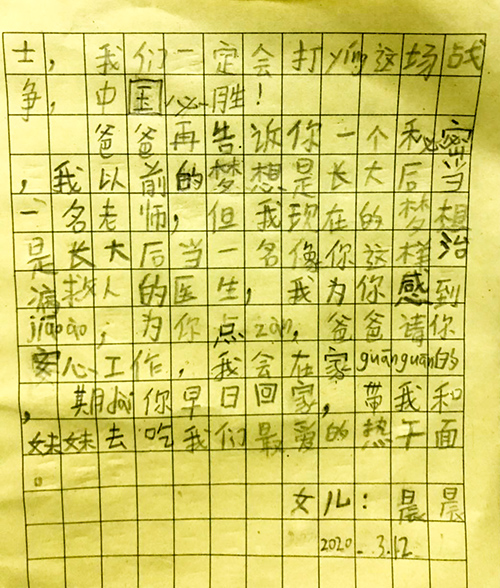 士，我们一定会打yíng这场战
争，中国必胜！
爸爸再告诉你一个秘密
，我以前的梦想是长大后当
一名老师，但我现在的梦想
是长大后当一名像你这样治
病救人的医生，我为你感到
jiāoào，为你点zàn，爸爸请你
安心工作，我会在家guāiguāi的
，期dài你早日回家，带我和
妹妹去吃我们最爱的热干面
。
女儿：晨晨
2020.3.12